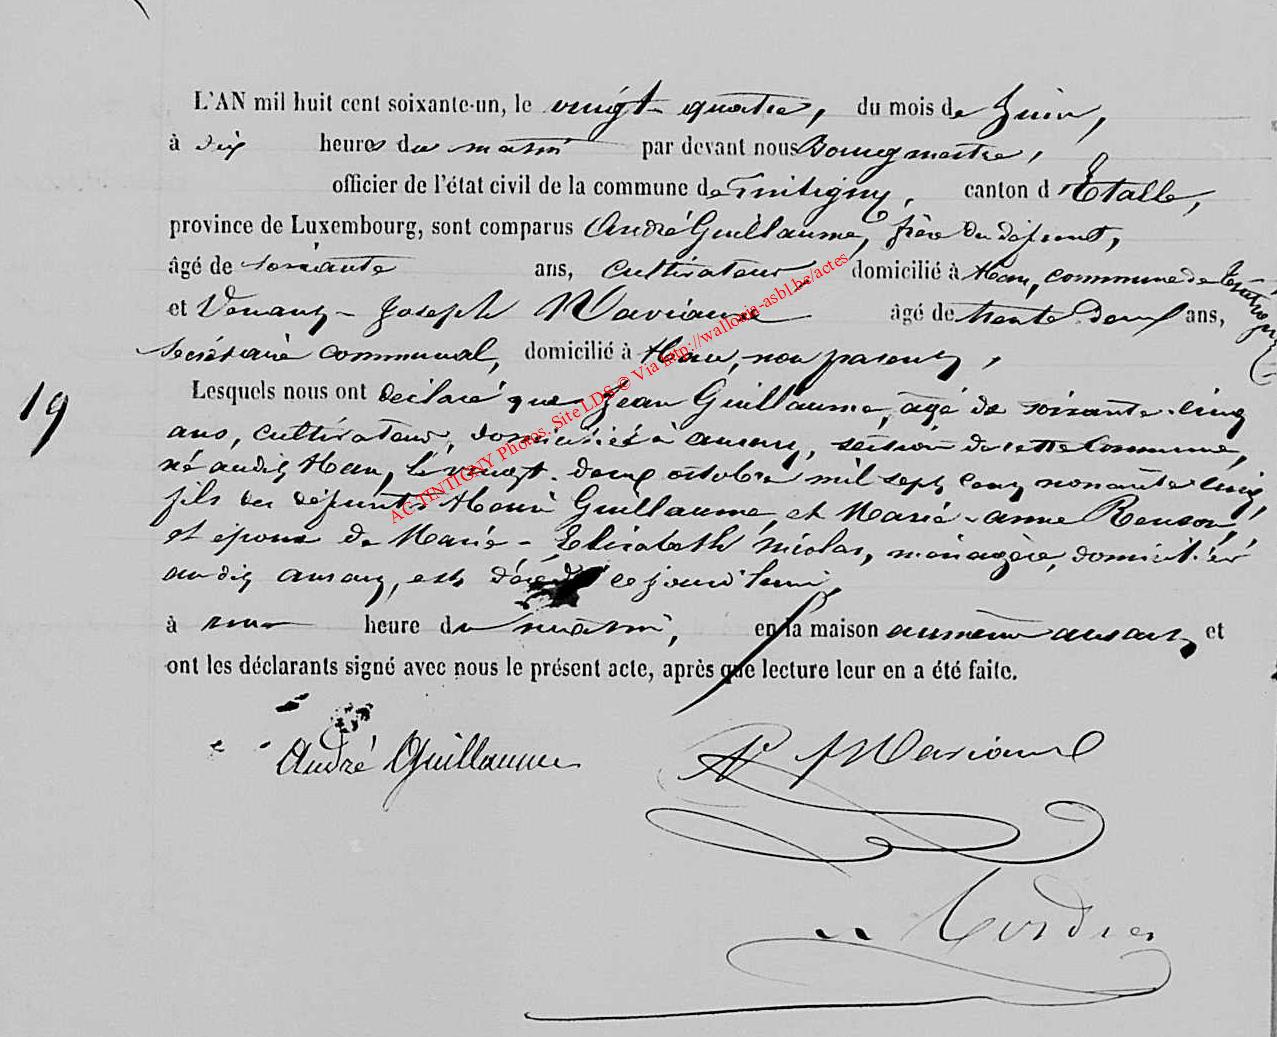 L'AN mil huit cent soixante-un, le vingt quatre, du mois de Juin,
à dix heures du matin par devant nous Bourgmestre,
officier de l'état civil de la commune de Tintigny, canton d'Etalle,
province de Luxembourg, sont comparus André Guillaume, frère du défunt,
âgé de soixante ans, cultivateur, domicilié à Han, commune de
et Venant-Joseph Maviane âgé de trente deux ans,
secrétaire communal, domicilié à Han, non parent,
19
Lesquels nous ont déclaré que Jean Guillaume, âgé de soixante-cinq
ans, cultivateur, domicilié à ansart, section de cette Commune,
né audit Han, le vingt-deux octobre mil sept cent nonante cinq,
fils des défunts Henri Guillaume, et Marie-anne Renson,
et époux de Marie-Elisabeth Nicolas, ménagère, domiciliée
audit ansart, est décédé ce jourd'hui,
à une heure du matin, en la maison au même ansart, et
ont les déclarants signé avec nous le présent acte, après que lecture leur en a été faite.
André Guillaume
AC TINTIGNY Photos. Site LDS © Via http://wallonia-asbl.be/actes